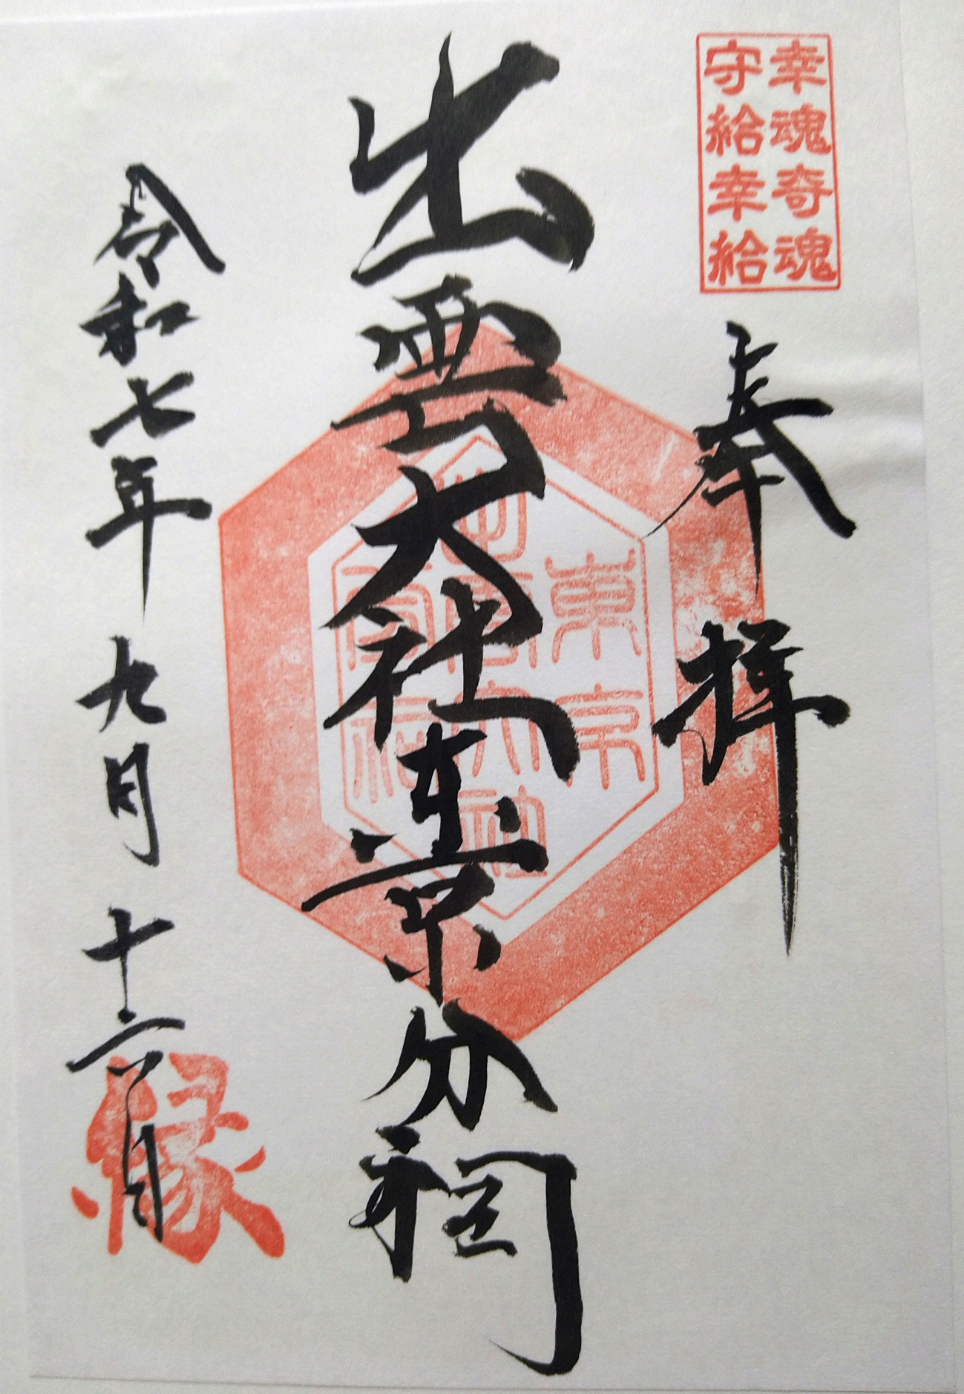 幸魂奇魂
守給幸給
奉拝
出雲大社東京分祠
東京
出雲大社
令和七年九月十二日
縁